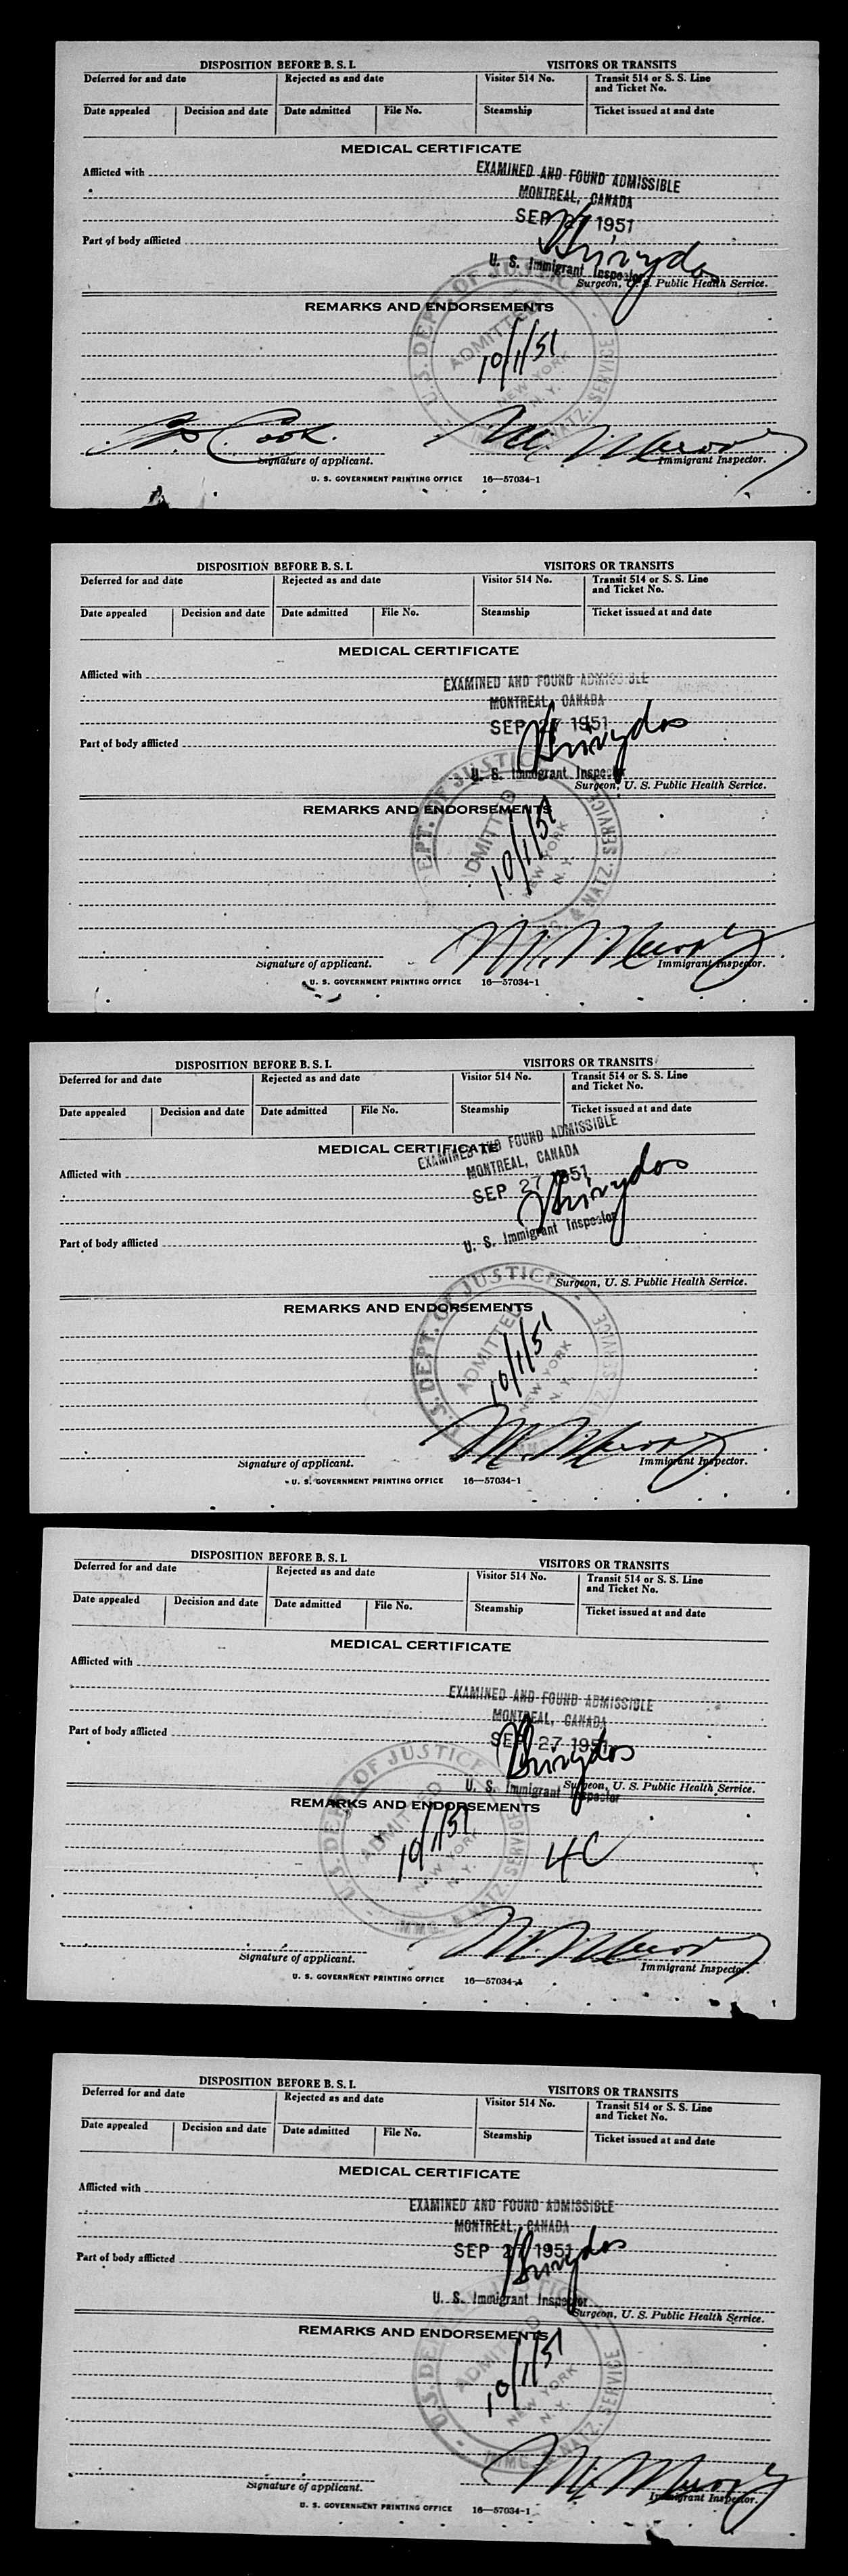 DISPOSITION BEFORE B. S. I. VISITORS OR TRANSITS
Deferred for and date Rejected as and date Visitor 514 No. Transit 514 or S. S. Line and Ticket No.
Date appealed Decision and date Date admitted File No. Steamship Ticket issued at and date
MEDICAL CERTIFICATE
Afflicted with
EXAMINED AND FOUND ADMISSIBLE
MONTREAL, CANADA
SEP 27 1951
Part of body afflicted
U. S. Immigrant Inspector
Surgeon, U. S. Public Health Service.
REMARKS AND ENDORSEMENTS
U. S. DEPT. OF JUSTICE
ADMITTED
10/1/51
NEW YORK
N. Y.
NATZ. SERVICE
Cook
Signature of applicant. Immigrant Inspector.
U. S. GOVERNMENT PRINTING OFFICE 16—57034-1
DISPOSITION BEFORE B. S. I. VISITORS OR TRANSITS
Deferred for and date Rejected as and date Visitor 514 No. Transit 514 or S. S. Line and Ticket No.
Date appealed Decision and date Date admitted File No. Steamship Ticket issued at and date
MEDICAL CERTIFICATE
Afflicted with
EXAMINED AND FOUND ADMISSIBLE
MONTREAL, CANADA
SEP 27 1951
Part of body afflicted
U. S. Immigrant Inspector
Surgeon, U. S. Public Health Service.
REMARKS AND ENDORSEMENTS
DEPT. OF JUSTICE
ADMITTED
10/1/51
NEW YORK
N. Y.
& NATZ. SERVICE
Signature of applicant. Immigrant Inspector.
U. S. GOVERNMENT PRINTING OFFICE 16—57034-1
DISPOSITION BEFORE B. S. I. VISITORS OR TRANSITS
Deferred for and date Rejected as and date Visitor 514 No. Transit 514 or S. S. Line and Ticket No.
Date appealed Decision and date Date admitted File No. Steamship Ticket issued at and date
MEDICAL CERTIFICATE
EXAMINED AND FOUND ADMISSIBLE
MONTREAL, CANADA
Afflicted with
SEP 27 1951
U. S. Immigrant Inspector
Part of body afflicted
Surgeon, U. S. Public Health Service.
REMARKS AND ENDORSEMENTS
U. S. DEPT. OF JUSTICE
ADMITTED
10/1/51
NEW YORK
N. Y.
NATZ. SERVICE
Signature of applicant. Immigrant Inspector.
U. S. GOVERNMENT PRINTING OFFICE 16—57034-1
DISPOSITION BEFORE B. S. I. VISITORS OR TRANSITS
Deferred for and date Rejected as and date Visitor 514 No. Transit 514 or S. S. Line and Ticket No.
Date appealed Decision and date Date admitted File No. Steamship Ticket issued at and date
MEDICAL CERTIFICATE
Afflicted with
EXAMINED AND FOUND ADMISSIBLE
MONTREAL, CANADA
SEP 27 1951
Part of body afflicted
U. S. Immigrant Inspector
Surgeon, U. S. Public Health Service.
REMARKS AND ENDORSEMENTS
U. S. DEPT. OF JUSTICE
ADMITTED
10/1/51 4C
NEW YORK
N. Y.
IMMG. & NATZ. SERVICE
Signature of applicant. Immigrant Inspector.
U. S. GOVERNMENT PRINTING OFFICE 16—57034-1
DISPOSITION BEFORE B. S. I. VISITORS OR TRANSITS
Deferred for and date Rejected as and date Visitor 514 No. Transit 514 or S. S. Line and Ticket No.
Date appealed Decision and date Date admitted File No. Steamship Ticket issued at and date
MEDICAL CERTIFICATE
Afflicted with
EXAMINED AND FOUND ADMISSIBLE
MONTREAL, CANADA
SEP 27 1951
Part of body afflicted
U. S. Immigrant Inspector
Surgeon, U. S. Public Health Service.
REMARKS AND ENDORSEMENTS
ADMITTED
10/1/51
NEW YORK
N. Y.
IMMG. & NATZ. SERVICE
Signature of applicant. Immigrant Inspector.
U. S. GOVERNMENT PRINTING OFFICE 16—57034-1